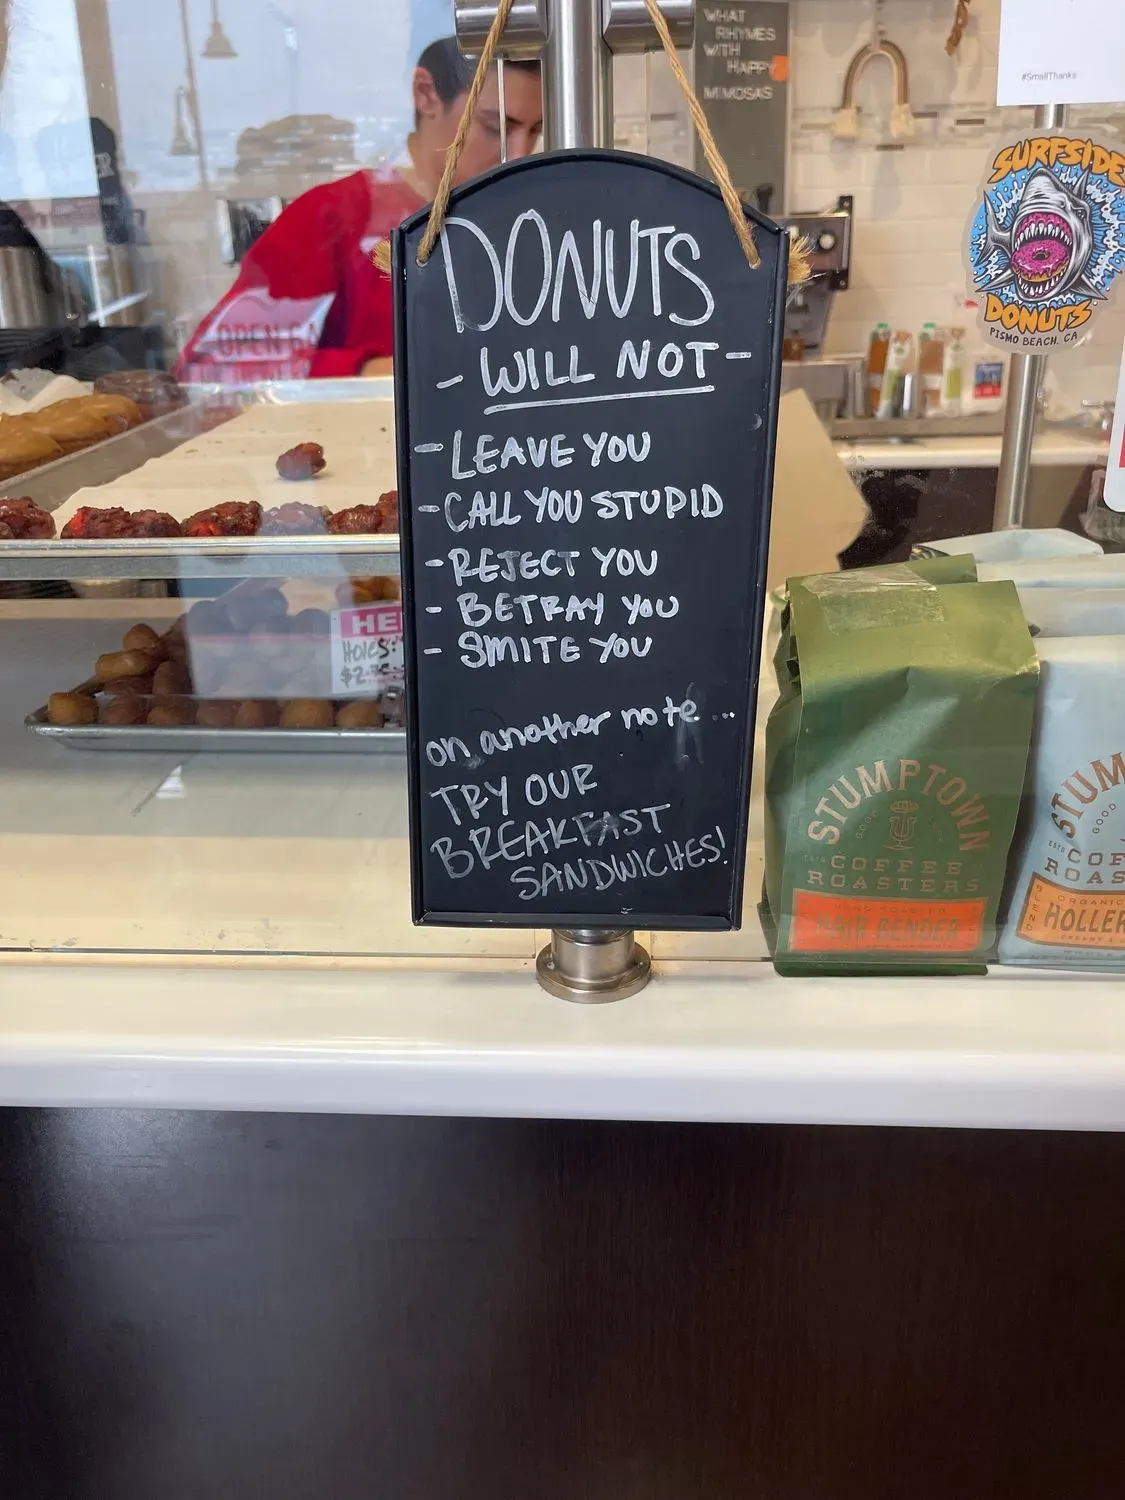 WHAT
RHYMES
WITH
HAPPY
MIMOSAS
#SmallThanks
SURFSIDE
DONUTS
PISMO BEACH, CA
DONUTS
- WILL NOT -
- LEAVE YOU
- CALL YOU STUPID
- REJECT YOU
- BETRAY YOU
- SMITE YOU
on another note...
TRY OUR
BREAKFAST
SANDWICHES!
OPEN
HE
HOLES:
STUMPTOWN
GOOD
ESTD
COFFEE
ROASTERS
HAIR BENDER
STUM
GOOD
ESTD
COF
ROAS
BLEND
ORGANIC
HOLLER